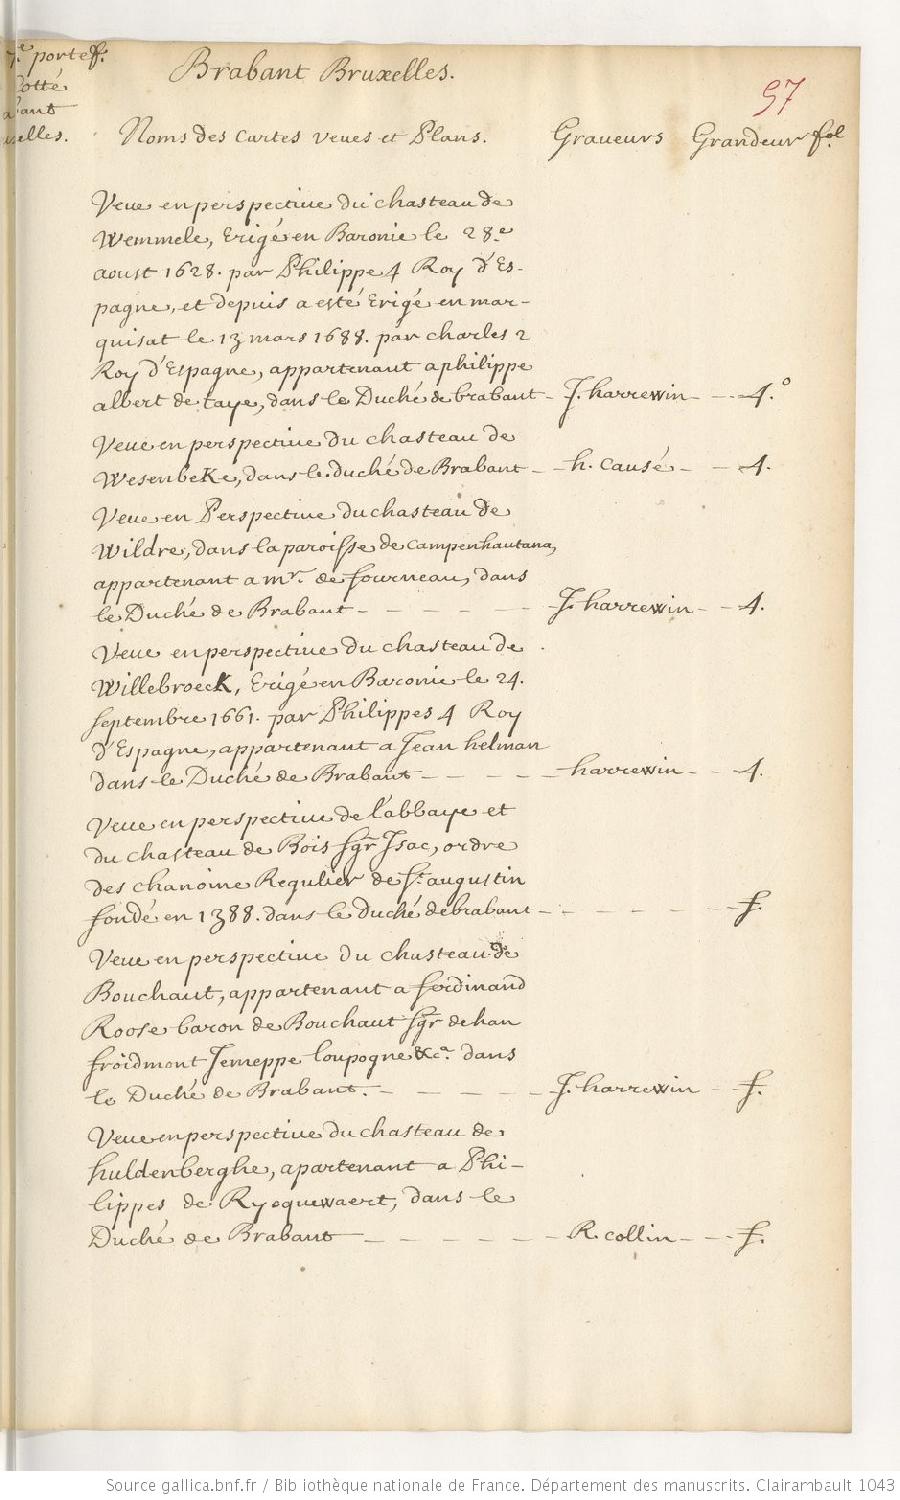 7.e portef.
Cotté
abant
uxelles.
Brabant Bruxelles.
97
Noms des Cartes veues et Plans. Graveurs Grandeur fol.
Veue en perspective du chasteau de
Wemmele, Erigé en Baronie le 28.e
aoust 1628. par Philippe 4 Roy d'Es-
pagne, et depuis a esté Erigé en mar-
quisat le 13 mars 1688. par charles 2
Roy d'Espagne, appartenant a philippe
albert de taye, dans le Duché de brabant - J. harrewin - - - 4.o
Veue en perspective du chasteau de
Wesenbeke, dans le duché de Brabant - - h. causé - - 4.
Veue en Perspective du chasteau de
Wildre, dans la paroisse de Campenhautana,
appartenant a mr. de fourneau, dans
le Duché de Brabant - - - - - - J. harrewin - - 4.
Veue en perspective du chasteau de
Willebroeck, Erigé en Baronie le 24.
septembre 1661. par Philippes 4 Roy
d'Espagne, appartenant a Jean helman
dans le Duché de Brabant - - - - - harrewin - - 4.
Veue en perspective de l'abbaye et
du chasteau de Bois sgr Isac, ordre
des chanoine Regulier de St. augustin
fondé en 1388. dans le duché de brabant - - - - - - f.
Veue en perspective du chasteau de
Bouchaut, appartenant a ferdinand
Roose baron de Bouchaut sgr de han
froidmont Jemeppe loupogne &ca. dans
le Duché de Brabant. - - - - - J. harrewin - - f.
Veue en perspective du chasteau de
huldenberghe, apartenant a Phi-
lippes de Ryoquewaert, dans le
Duché de Brabant - - - - - - R. collin - - - f.
Source gallica.bnf.fr / Bibliothèque nationale de France. Département des manuscrits. Clairambault 1043